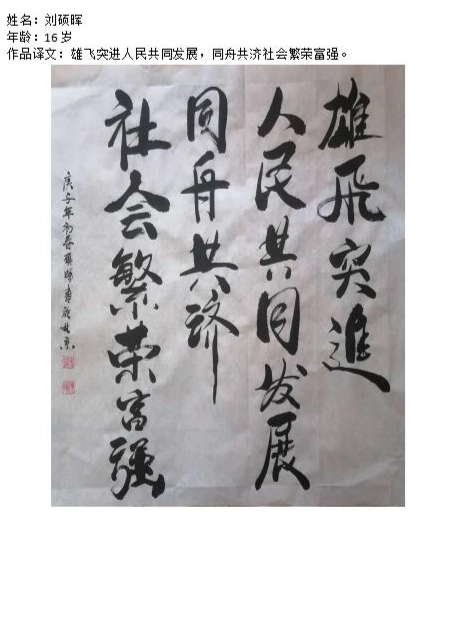 姓名：刘硕晖
年龄：16岁
作品译文：雄飞突进人民共同发展，同舟共济社会繁荣富强。
雄飛突進
人民共同发展
同舟共济
社会繁荣富强
庚子年初春硕晖書於北京